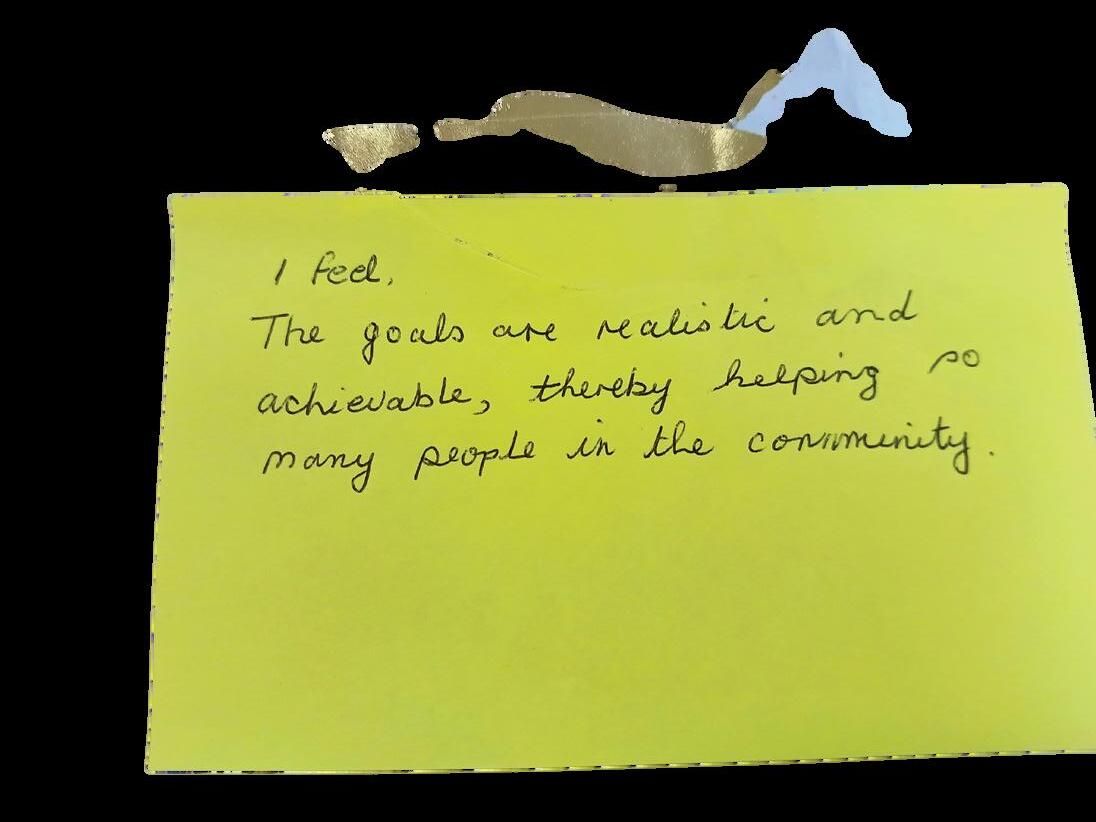 I feel,
The goals are realistic and
achievable, thereby helping so
many people in the community.